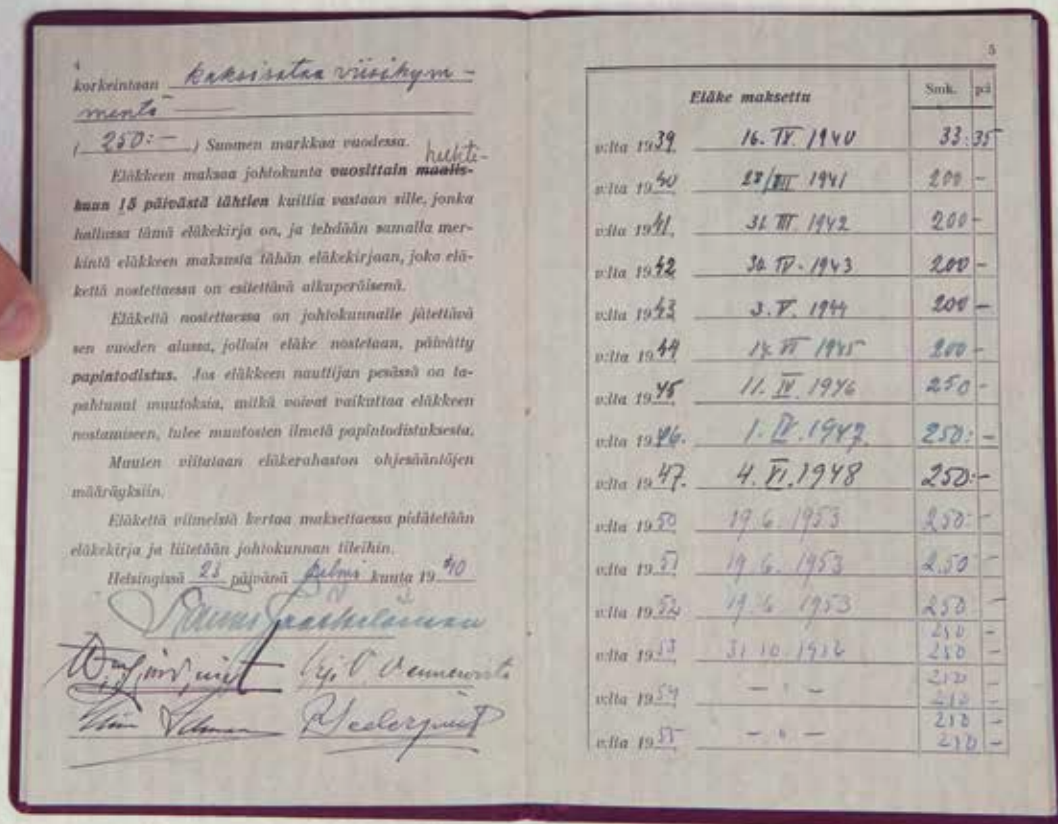 4
korkeintaan kaksisataa viisikym-
mentä
( 250:— ) Suomen markkaa vuodessa.
huhti-
Eläkkeen maksaa johtokunta vuosittain maalis-
kuun 15 päivästä lähtien kuittia vastaan sille, jonka
hallussa tämä eläkekirja on, ja tehdään samalla mer-
kintä eläkkeen maksusta tähän eläkekirjaan, joka elä-
kettä nostettaessa on esitettävä alkuperäisenä.
Eläkettä nostettaessa on johtokunnalle jätettävä
sen vuoden alussa, jolloin eläke nostetaan, päivätty
papintodistus. Jos eläkkeen nauttijan pesässä on ta-
pahtunut muutoksia, mitkä voivat vaikuttaa eläkkeen
nostamiseen, tulee muutosten ilmetä papintodistuksesta.
Muuten viitataan eläkerahaston ohjesääntöjen
määräyksiin.
Eläkettä viimeistä kertaa maksettaessa pidätetään
eläkekirja ja liitetään johtokunnan tileihin.
Helsingissä 23 päivänä helmi kuuta 19 40
5
Eläke maksettu Smk. pä
v:lta 1939. 16. IV. 1940 33:35
v:lta 1940 28/III 1941 200 -
v:lta 1941. 31. III. 1942 200 -
v:lta 1942 30. IV. 1943 200 -
v:lta 1943 3. V. 1944 200 -
v:lta 1944 14. VI 1945 200 -
v:lta 1945 11. IV. 1946 250 -
v:lta 1946. 1. IV. 1947. 250: -
v:lta 1947. 4. VI. 1948 250:-
v:lta 1950 19.6. 1953 250: -
v:lta 1951 19.6. 1953 250 -
v:lta 1952 19.6 1953 250 -
250 -
v:lta 1953 31.10.1956 250 -
250 -
v:lta 1954 — " — 250 -
250 -
v:lta 1955 — " — 250 -